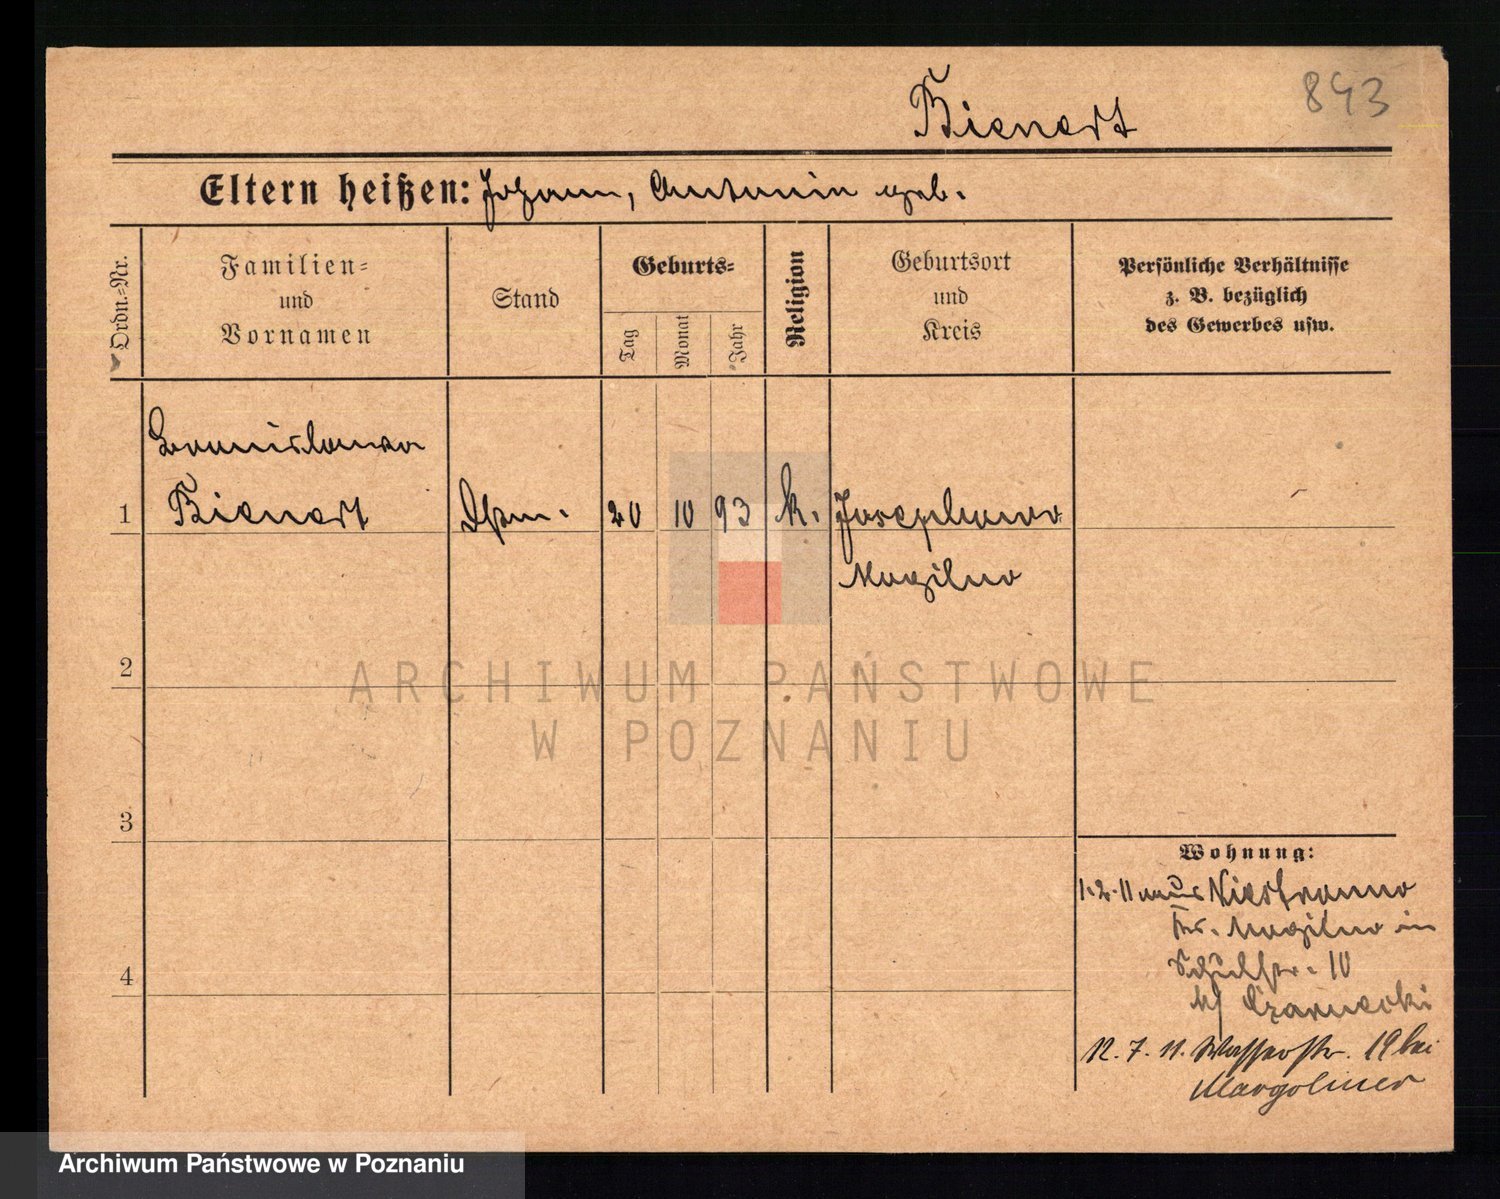 843
Bienert
Eltern heißen: Johann, Antonin geb.
Ordn.-Nr.
Familien-
und
Vornamen
Stand
Geburts-
Tag
Monat
Jahr
Religion
Geburtsort
und
Kreis
Persönliche Verhältnisse
z. B. bezüglich
des Gewerbes usw.
Bronislawa
1 Bienert 20 10 93 k. Josephowo
Mogilno
2
3
4
Wohnung:
1.2.11 aus
Kr. Mogilno in
Schulstr. 10
b/ Czarnecki
12.7.11. Wasserstr. 19 bei
Margoliner
ARCHIWUM PAŃSTWOWE
W POZNANIU
Archiwum Państwowe w Poznaniu